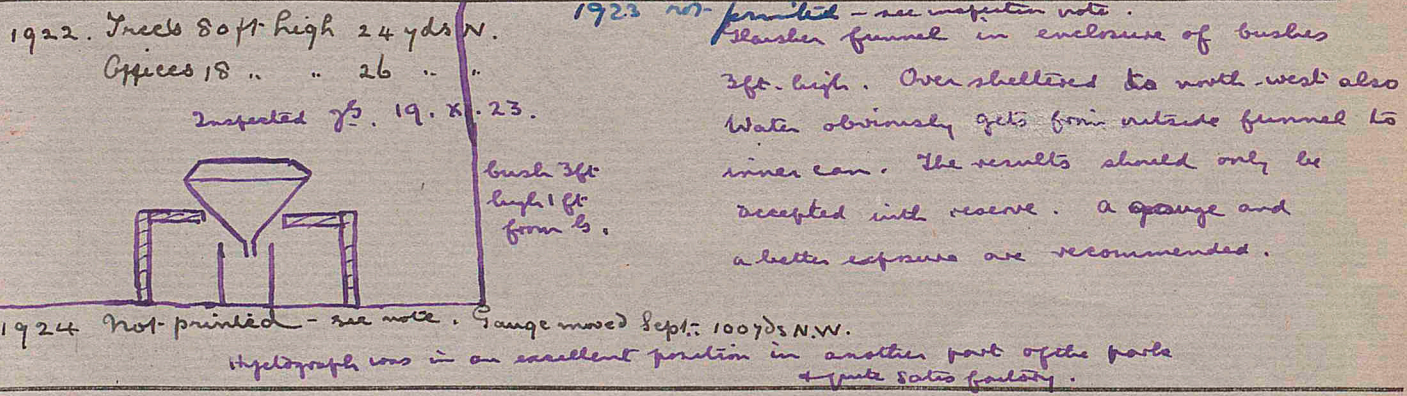 1922. Trees 80 ft high 24 yds N.
Offices 18 .. .. 26 .. ..
Inspected 19. XI. 23.
bush 3ft
high 1 ft
from G.
1923 not printed - see inspection note.
Glaisher funnel in enclosure of bushes
3ft. high. Over sheltered to north-west also
Water obviously gets from outside funnel to
inner can. The results should only be
accepted with reserve. A gauge and
a better exposure are recommended.
1924 Not printed - see note. Gauge moved Sept: 100 yds N.W.
Hyetograph was in an excellent position in another part of the park
+ quite satisfactory.